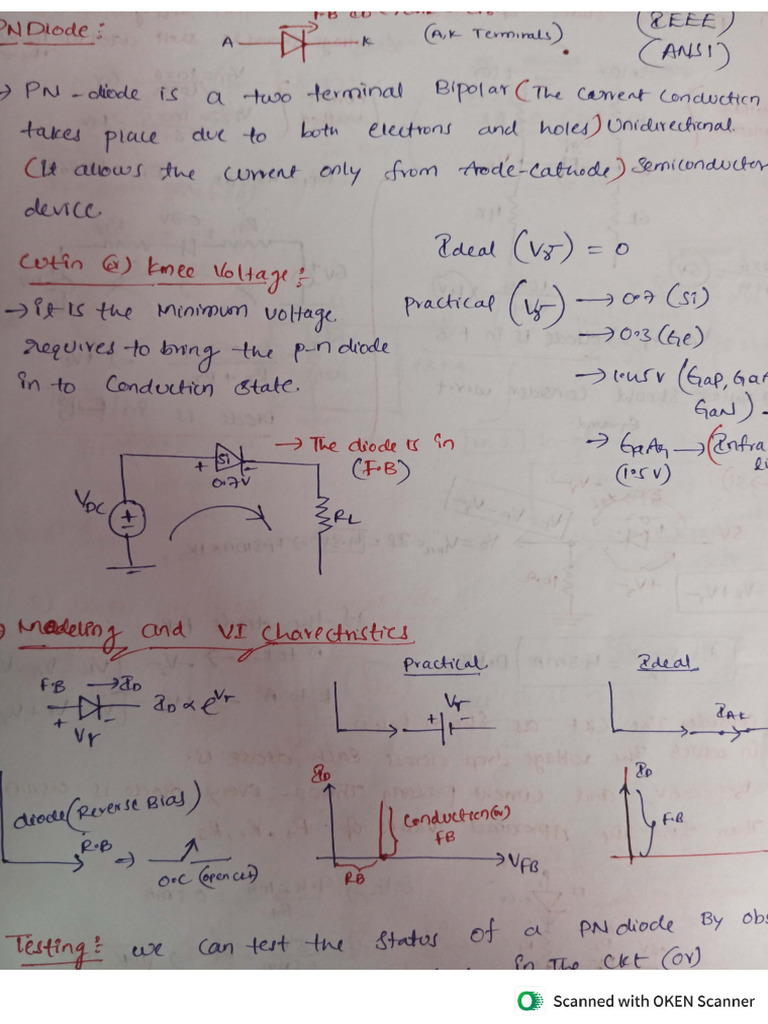 PN Diode:
A K (A,K Terminals)
(IEEE)
(ANSI)
→ PN-diode is a two terminal Bipolar (The current conduction
takes place due to both electrons and holes) Unidirectional.
(It allows the current only from Anode-Cathode) Semiconductor
device.
Cutin (or) knee Voltage:
→ it is the Minimum voltage
requires to bring the p-n diode
in to Conduction State.
Ideal (Vr) = 0
Practical (Vr) → 0.7 (Si)
→ 0.3 (Ge)
(GaP,
GaN)
(1.5V)
→ The diode is in
(F.B)
VDC + - + Si - 0.7V RL
Modeling and VI Charectristics
FB → ID
+ Vr -
ID ∝ e^Vr
Practical
+ Vr -
Ideal
diode (Reverse Bias)
R.B →
O.C (open ckt)
ID
Conduction (or)
FB
RB
VFB
ID
F.B
Testing: we can test the status of a PN diode By
in The CKT (or)
Scanned with OKEN Scanner